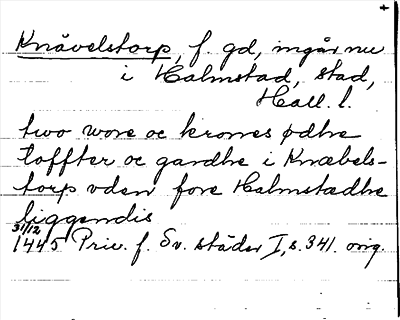 +
Knävelstorp, f. gd, ingår nu
i Halmstad, stad,
Hall. l.
two wore oc krones ødhe
toffter oc gardhe i Knæbels-
torp vden fore Halmstædhe
liggendis
31/12
1445 Priv. f. Sv. städer I, s. 341. orig.